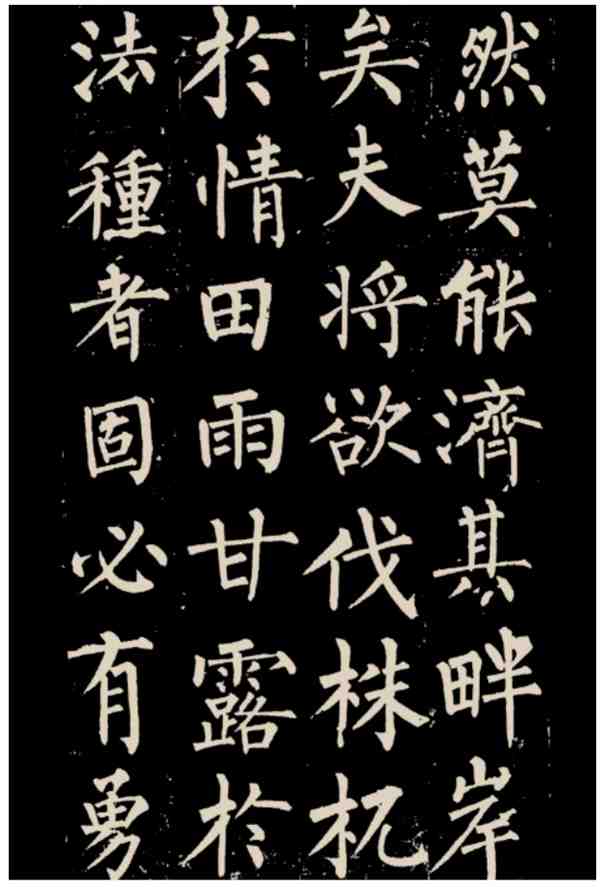 然莫能濟其畔岸
矣夫將欲伐株杌
於情田雨甘露於
法種者固必有勇